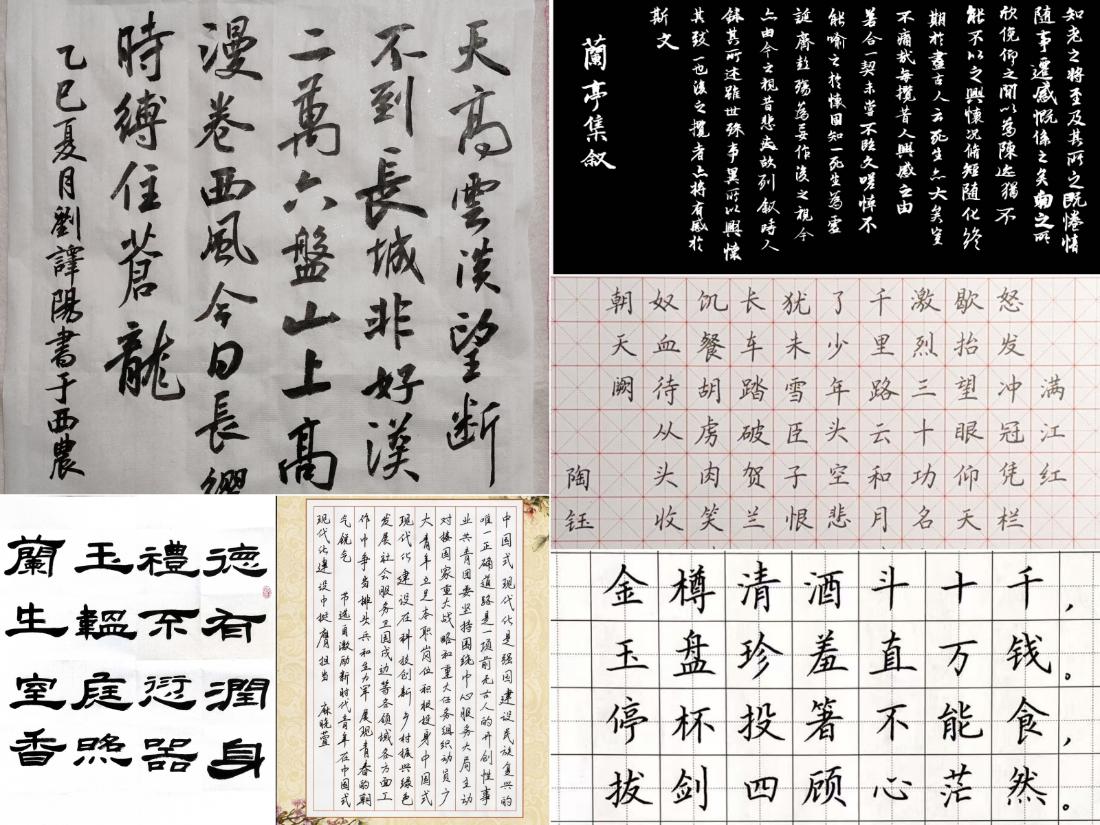 天高雲淡望斷
不到長城非好漢
二萬六盤山上高
漫卷西風今日長纓
時縛住蒼龍
乙巳夏月劉譯陽書于西農
知老之將至及其所之既惓情
隨事遷感慨係之矣向之所
欣俛仰之閒以為陳迹猶不
能不以之興懷況脩短隨化終
期於盡古人云死生亦大矣豈
不痛哉每攬昔人興感之由
若合一契未嘗不臨文嗟悼不
能喻之於懷固知一死生為虛
誕齊彭殤為妄作後之視今
亦由今之視昔悲夫故列叙時人
錄其所述雖世殊事異所以興懷
其致一也後之攬者亦將有感於
斯文
蘭亭集叙
满江红
怒发冲冠凭栏
歇抬望眼仰天
激烈三十功名
千里路云和月
了少年头空悲
犹未雪臣子恨
长车踏破贺兰
饥餐胡虏肉笑
奴血待从头收
朝天阙
陶钰
德有潤身
禮不愆器
玉韞庭照
蘭生室香
中国式现代化是强国建设民族复兴的
唯一正确道路是一项前无古人的开创性事
业共青团要坚持围绕中心服务大局主动
对接国家重大战略和重大任务组织动员广
大青年立足本职岗位积极投身中国式
现代化建设在科技创新乡村振兴绿色
发展社会服务卫国戍边等各领域各方面工
作中争当排头兵和生力军展现青春的朝
气锐气 节选自激励新时代青年在中国式
现代化建设中挺膺担当 麻晓萱
金樽清酒斗十千，
玉盘珍羞直万钱。
停杯投箸不能食，
拔剑四顾心茫然。